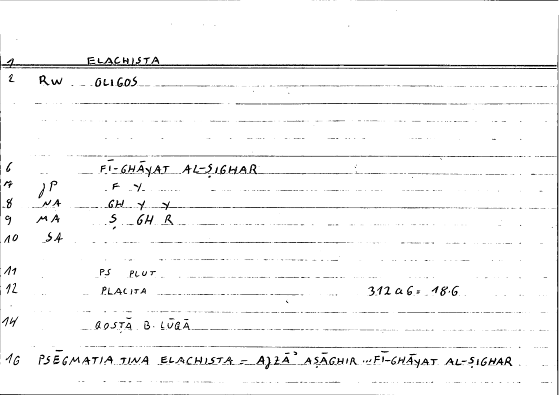 1 ELACHISTA
2 RW OLIGOS
6 FĪ-GHĀYAT AL-ṢIGHAR
7 JP F Y
8 NA GH Y Y
9 MA Ṣ GH R
10 SA
11 PS PLUT
12 PLACITA 312 a 6 = 18.6
14 QOSṬĀ B. LŪQĀ
16 PSĒGMATIA TINA ELACHISTA = AJZĀʾ AṢĀGHIR ... FĪ-GHĀYAT AL-ṢIGHAR